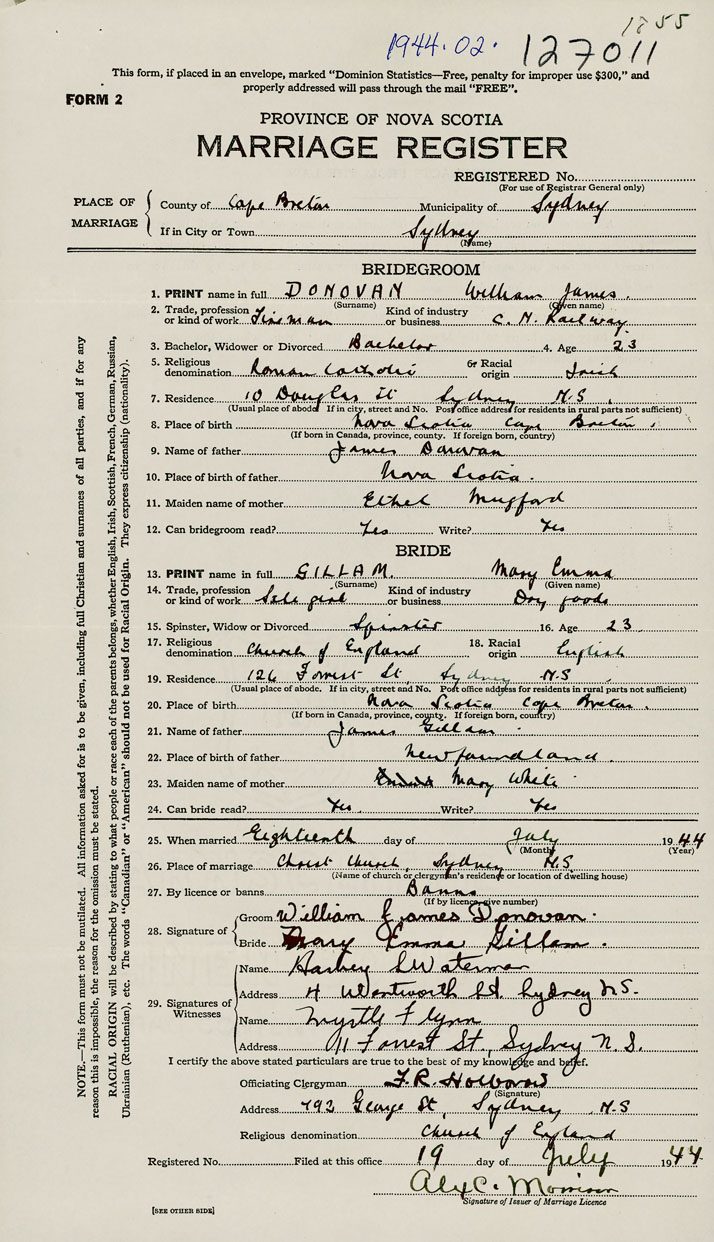 1855
1944.02. 127011
This form, if placed in an envelope, marked "Dominion Statistics—Free, penalty for improper use $300," and
properly addressed will pass through the mail "FREE".
FORM 2
PROVINCE OF NOVA SCOTIA
MARRIAGE REGISTER
REGISTERED No.
(For use of Registrar General only)
PLACE OF MARRIAGE
County of Cape Breton Municipality of Sydney
If in City or Town Sydney
(Name)
BRIDEGROOM
1. PRINT name in full DONOVAN William James.
(Surname) (Given name)
2. Trade, profession or kind of work Kind of industry or business C. N. Railway
3. Bachelor, Widower or Divorced Bachelor 4. Age 23
5. Religious denomination Roman Catholic 6. Racial origin Irish
7. Residence 10 Douglas St Sydney N.S
(Usual place of abode If in city, street and No. Post office address for residents in rural parts not sufficient)
8. Place of birth Nova Scotia Cape Breton.
(If born in Canada, province, county. If foreign born, country)
9. Name of father James Donovan
10. Place of birth of father Nova Scotia.
11. Maiden name of mother Ethel Mugford
12. Can bridegroom read? Yes Write? Yes
BRIDE
13. PRINT name in full GILLAM. Mary Emma
(Surname) (Given name)
14. Trade, profession or kind of work Sale girl Kind of industry or business Dry goods
15. Spinster, Widow or Divorced Spinster 16. Age 23.
17. Religious denomination Church of England 18. Racial origin English
19. Residence 126 Forrest St, Sydney N.S
(Usual place of abode. If in city, street and No. Post office address for residents in rural parts not sufficient)
20. Place of birth Nova Scotia Cape Breton.
(If born in Canada, province, county. If foreign born, country)
21. Name of father James Gillam
22. Place of birth of father Newfoundland.
23. Maiden name of mother Mary White
24. Can bride read? Yes. Write? Yes
25. When married Eighteenth day of July 1944
(Month) (Year)
26. Place of marriage Christ Church, Sydney N.S
(Name of church or clergyman's residence or location of dwelling house)
27. By licence or banns Banns
(If by licence give number)
28. Signature of
Groom William James Donovan.
Bride Mary Emma Gillam.
29. Signatures of Witnesses
Name Harvey S Waterman
Address 4 Wentworth St. Sydney N.S.
Name Myrtle Flynn
Address 11 Forrest St., Sydney N.S.
I certify the above stated particulars are true to the best of my knowledge and belief.
Officiating Clergyman F.R. Holborow
(Signature)
Address 792 George St, Sydney N.S
Religious denomination Church of England
Registered No. Filed at this office 19 day of July 1944
Alex C. Morrison
Signature of Issuer of Marriage Licence
[SEE OTHER SIDE]
NOTE.—This form must not be mutilated. All information asked for is to be given, including full Christian and surnames of all parties, and if for any
reason this is impossible, the reason for the omission must be stated.
RACIAL ORIGIN will be described by stating to what people or race each of the parents belongs, whether English, Irish, Scottish, French, German, Russian,
Ukrainian (Ruthenian), etc. The words "Canadian" or "American" should not be used for Racial Origin. They express citizenship (nationality).